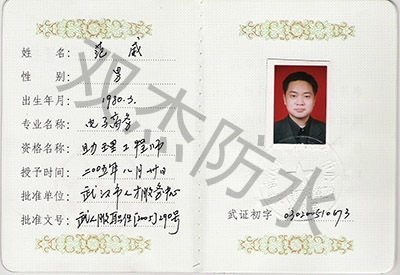 姓 名: 范 威
性 别: 男
出生年月: 1980.3.
专业名称: 电子商务
资格名称: 助理工程师
授予时间: 二00五年八月廿日
批准单位: 武汉市人才服务中心
批准文号: 武人服职[2005]290号
武证初字 030200510473
双杰防水